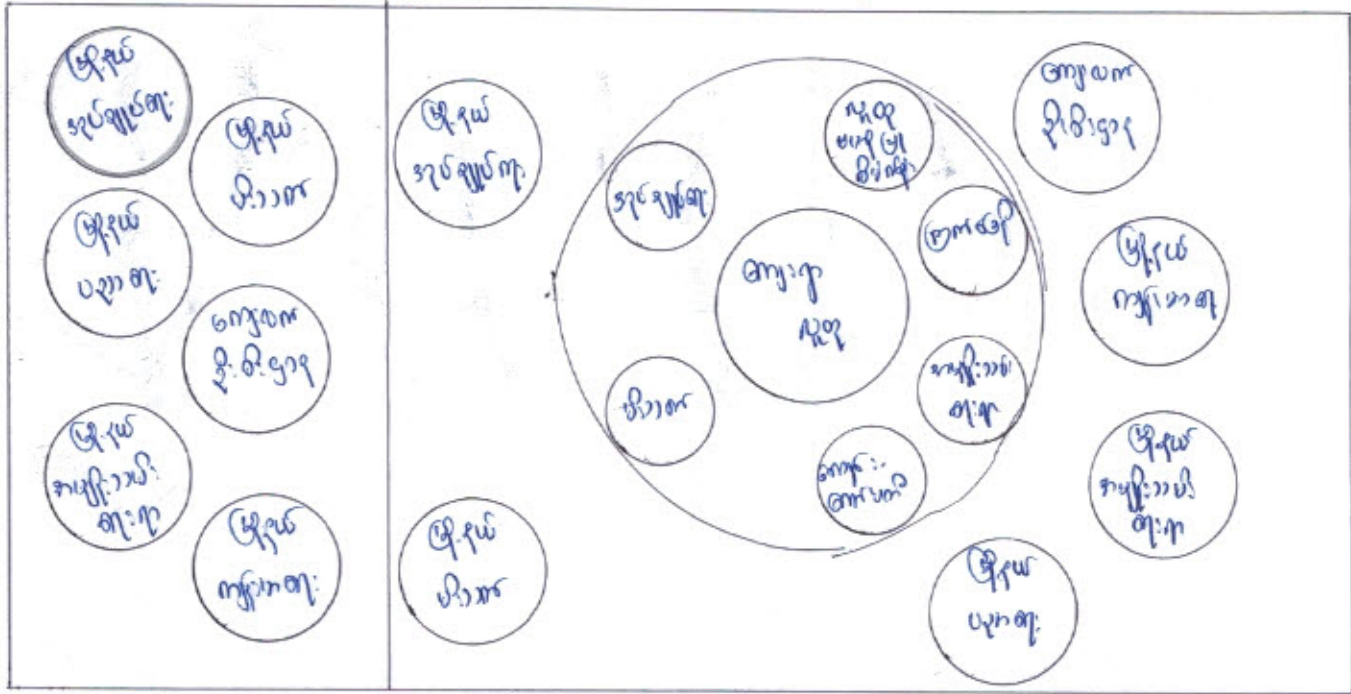 မြို့နယ်
အုပ်ချုပ်ရေး
မြို့နယ်
မီးသတ်
မြို့နယ်
ပညာရေး
ကျေးလက်
ဦးစီးဌာန
မြို့နယ်
အမျိုးသမီး
ရေးရာ
မြို့နယ်
ကျန်းမာရေး
မြို့နယ်
အုပ်ချုပ်ရေး
မြို့နယ်
မီးသတ်
အုပ်ချုပ်ရေး
လူထု
ဗဟိုပြု
ကြက်ခြေနီ
ကျေးရွာ
လူထု
မီးသတ်
အမျိုးသမီး
ရေးရာ
ကျောင်း
ကော်မတီ
ကျေးလက်
ဦးစီးဌာန
မြို့နယ်
ကျန်းမာရေး
မြို့နယ်
အမျိုးသမီး
ရေးရာ
မြို့နယ်
ပညာရေး